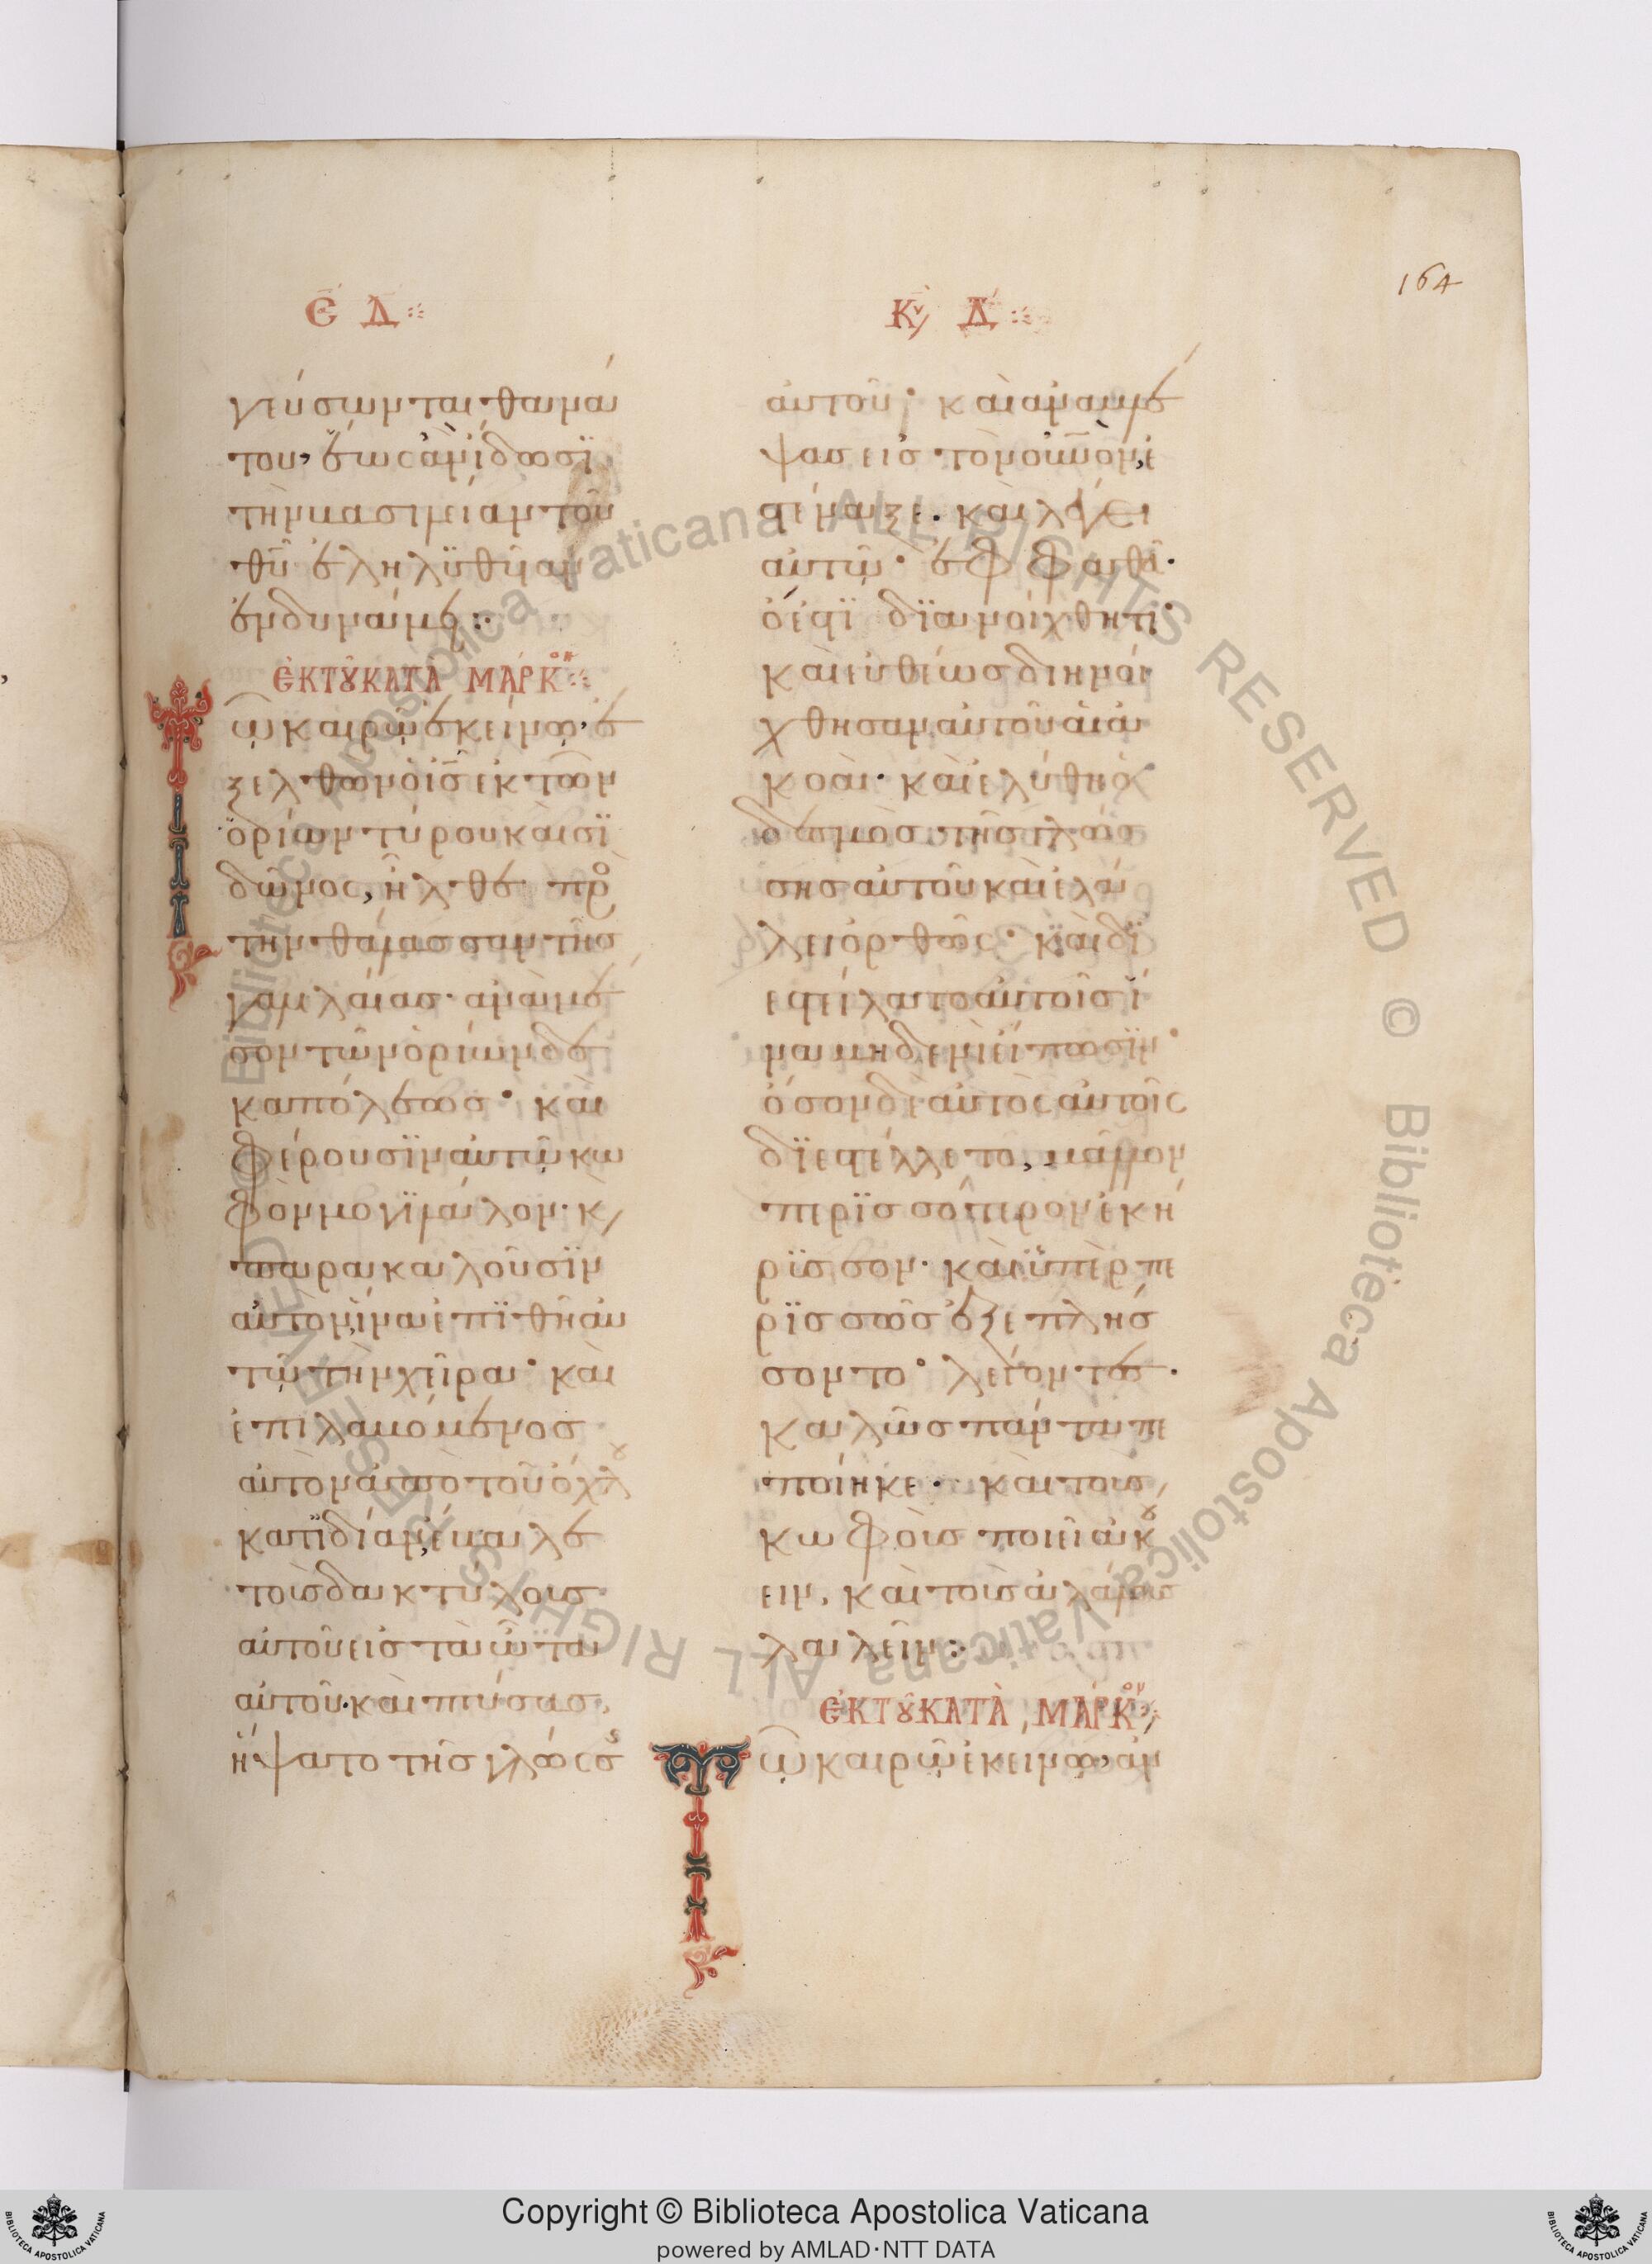 164
Ε Δ
γεύσωνται θανά
του, ἕως ἂν ἴδωσϊ
τὴν βασιλείαν τοῦ
θῦ ἐληλϋθῦιαν
ἐν δυνάμει:
ἘΚ ΤΟΥ ΚΑΤΑ ΜΑΡΚΟΝ
ῶ καιρῶ ἐκείνω, ἐ
ξελθὼν ὁ ις ἐκ τῶν
ὁρίων τύρου καὶ σϊ
δῶνος, ἦλθε πρὸ
τὴν θάλασσαν τῆς
γαλιλαίας· ἀνὰ μέ
σον τῶν ὁρίων δε
καπόλεως· καὶ
φέρουσϊν αὐτῶ κω
φὸν μογϊλάλον· κ
παρακαλοῦσϊν
αὐτὸν ἵνα ἐπϊθῆ αὐ
τῶ τὴν χεῖρα· καὶ
ἐπιλαβόμενος
αὐτὸν ἀπὸ τοῦ ὄχλου
κατϊδίαν, ἔβαλε
τοὺς δακτύλους
αὐτοῦ εἰς τὰ ὦτα
αὐτοῦ· καὶ πτύσας,
ἥψατο τῆς γλώσσης
Κυ Δ
αὐτοῦ· καὶ ἀναβλέ
ψας εἰς τὸν οὐνον, ἐ
στέναξε· καὶ λέγει
αὐτῶ· ἐφφαθά·
ὅ ἐστϊ διανοίχθητι·
καὶ εὐθέως διηνοί
χθησαν αὐτοῦ αἱ ἀ
κοαί· καὶ ἐλύθη ὁ
δεσμὸς τῆς γλώσ
σης αὐτοῦ καὶ ἐλά
λει ὀρθῶς· καὶ δϊ
εστείλατο αὐτοῖς ἵ
να μηδενὶ εἴπωσϊν·
ὅσον δὲ αὐτὸς αὐτοῖς
δϊεστέλλετο, μᾶλλον
περϊσσότερον ἐκή
ρϋσσον· καὶ ὑπὲρ πε
ρϊσσῶς ἐξεπλήσ
σοντο· λέγοντες·
καλῶς πάντα πε
ποίηκε· καὶ τοὺς
κωφοὺς ποιεῖ ἀκού
ειν, καὶ τοὺς ἀλάλους
λαλεῖν:
ἘΚ ΤΟΥ ΚΑΤΑ ΜΑΡΚΟΝ
Τῶ καιρῶ ἐκείνω, ἀπ
Biblioteca Apostolica Vaticana ALL RIGHTS RESERVED © Biblioteca Apostolica Vaticana ALL RIGHTS RESERVED ©
Copyright © Biblioteca Apostolica Vaticana
powered by AMLAD·NTT DATA
BIBLIOTECA APOSTOLICA VATICANA
BIBLIOTECA APOSTOLICA VATICANA